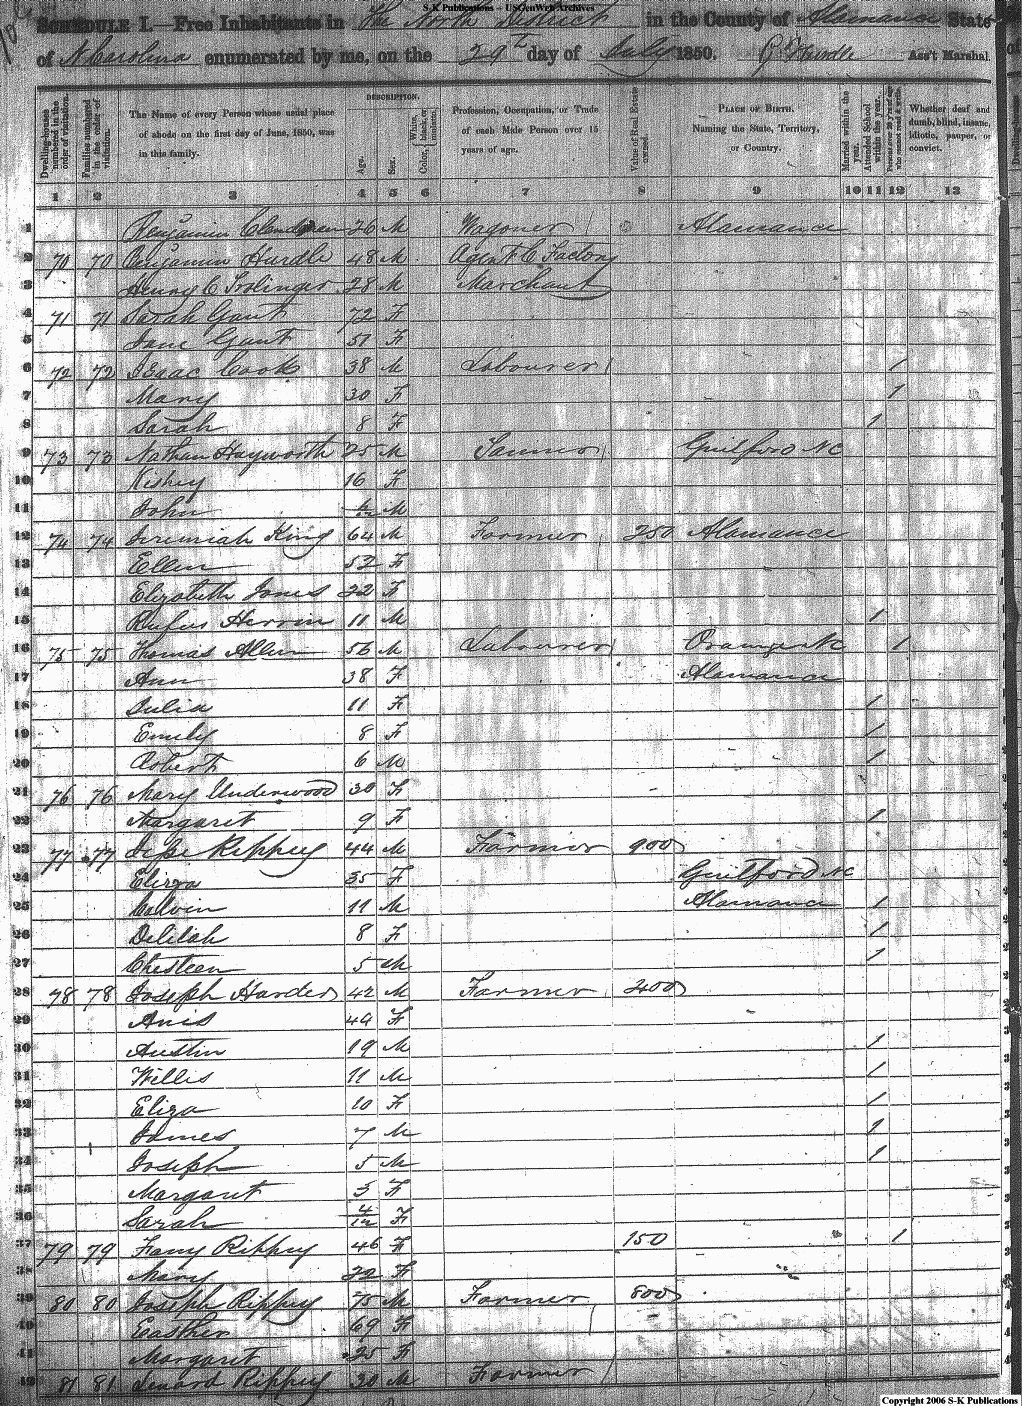 S-K Publications – USGenWeb Archives
SCHEDULE I.—Free Inhabitants in The North District in the County of Alamance State
of N Carolina enumerated by me, on the 29th day of July 1850. Hurdle Ass't Marshal.
DESCRIPTION.
Dwelling-houses numbered in the order of visitation.
Families numbered in the order of visitation.
The Name of every Person whose usual place of abode on the first day of June, 1850, was in this family.
Age.
Sex.
Color, White, black, or mulatto.
Profession, Occupation, or Trade of each Male Person over 15 years of age.
Value of Real Estate owned.
PLACE OF BIRTH. Naming the State, Territory, or Country.
Married within the year.
Attended School within the year.
Persons over 20 y'rs of age who cannot read & write.
Whether deaf and dumb, blind, insane, idiotic, pauper, or convict.
1 2 3 4 5 6 7 8 9 10 11 12 13
1 Benjamin Clendenen 26 M Wagoner Alamance
2 70 70 Benjamin Hurdle 48 M Agent C Factory
3 Henry C Trolinger 28 M Merchant
4 71 71 Sarah Gant 72 F
5 Jane Gant 51 F
6 72 72 Isaac Cook 38 M Labourer 1
7 Mary 30 F 1
8 Sarah 8 F 1
9 73 73 Nathan Hayworth 25 M Tanner Guilford NC
10 Kishey 16 F
11 John M
12 74 74 Jeremiah King 64 M Farmer 250 Alamance
13 Ellen 52 F
14 Elizabeth Jones 22 F
15 Rufus Herrin 11 M 1
16 75 75 Thomas Allen 56 M Labourer Orange NC 1
17 Ann 38 F Alamance
18 Julia 11 F 1
19 Emily 8 F 1
20 Robert 6 M 1
21 76 76 Mary Underwood 30 F
22 Margaret 9 F 1
23 77 77 Jesse Rippey 44 M Farmer 900
24 Eliza 35 F Guilford NC
25 Calvin 11 M Alamance 1
26 Delilah 8 F 1
27 Chesteen 5 M 1
28 78 78 Joseph Harder 42 M Farmer 200
29 Anis 44 F
30 Austin 19 M 1
31 Willis 11 M 1
32 Eliza 10 F 1
33 James 7 M 1
34 Joseph 5 M 1
35 Margaret 3 F
36 Sarah 4/12 F
37 79 79 Fanny Rippey 46 F 150 1
38 Mary 22 F
39 80 80 Joseph Rippey 75 M Farmer 800
40 Easther 69 F
41 Margaret 25 F
42 81 81 Lenard Rippey 30 M Farmer
Copyright 2006 S-K Publications